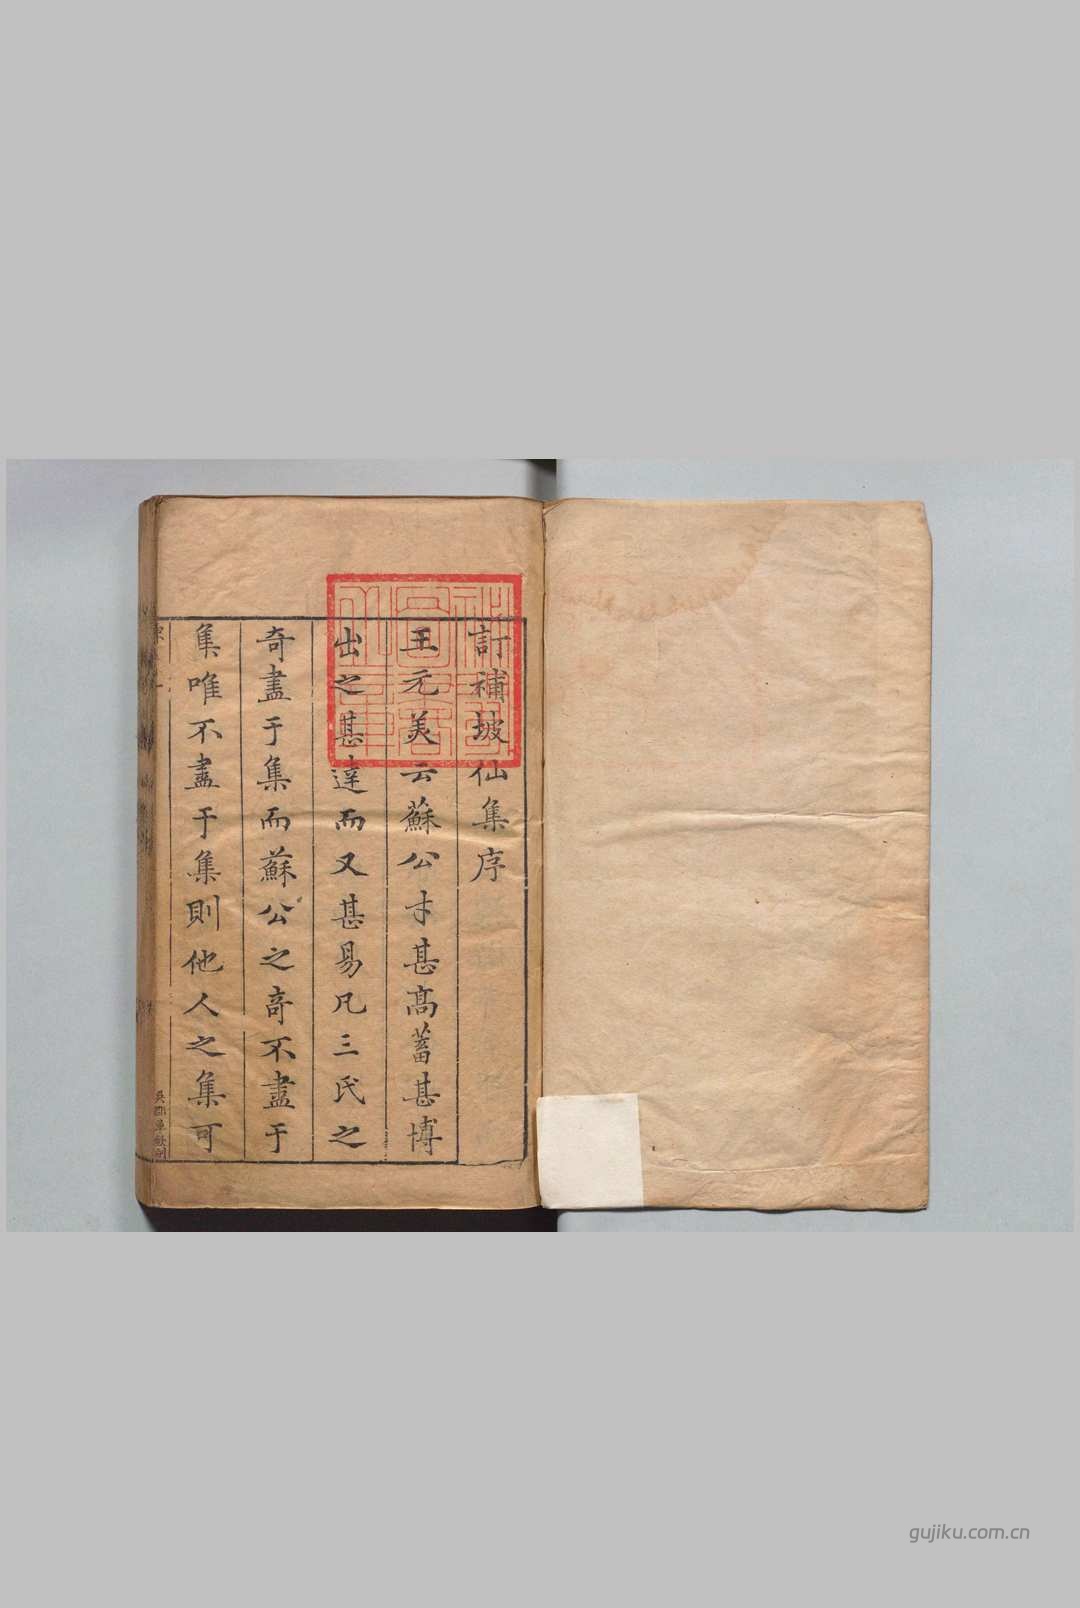 訂補坡仙集序
王元美云蘇公才甚高蓄甚博
出之甚達而又甚易凡三氏之
奇盡于集而蘇公之奇不盡于
集唯不盡于集則他人之集可
gujiku.com.cn